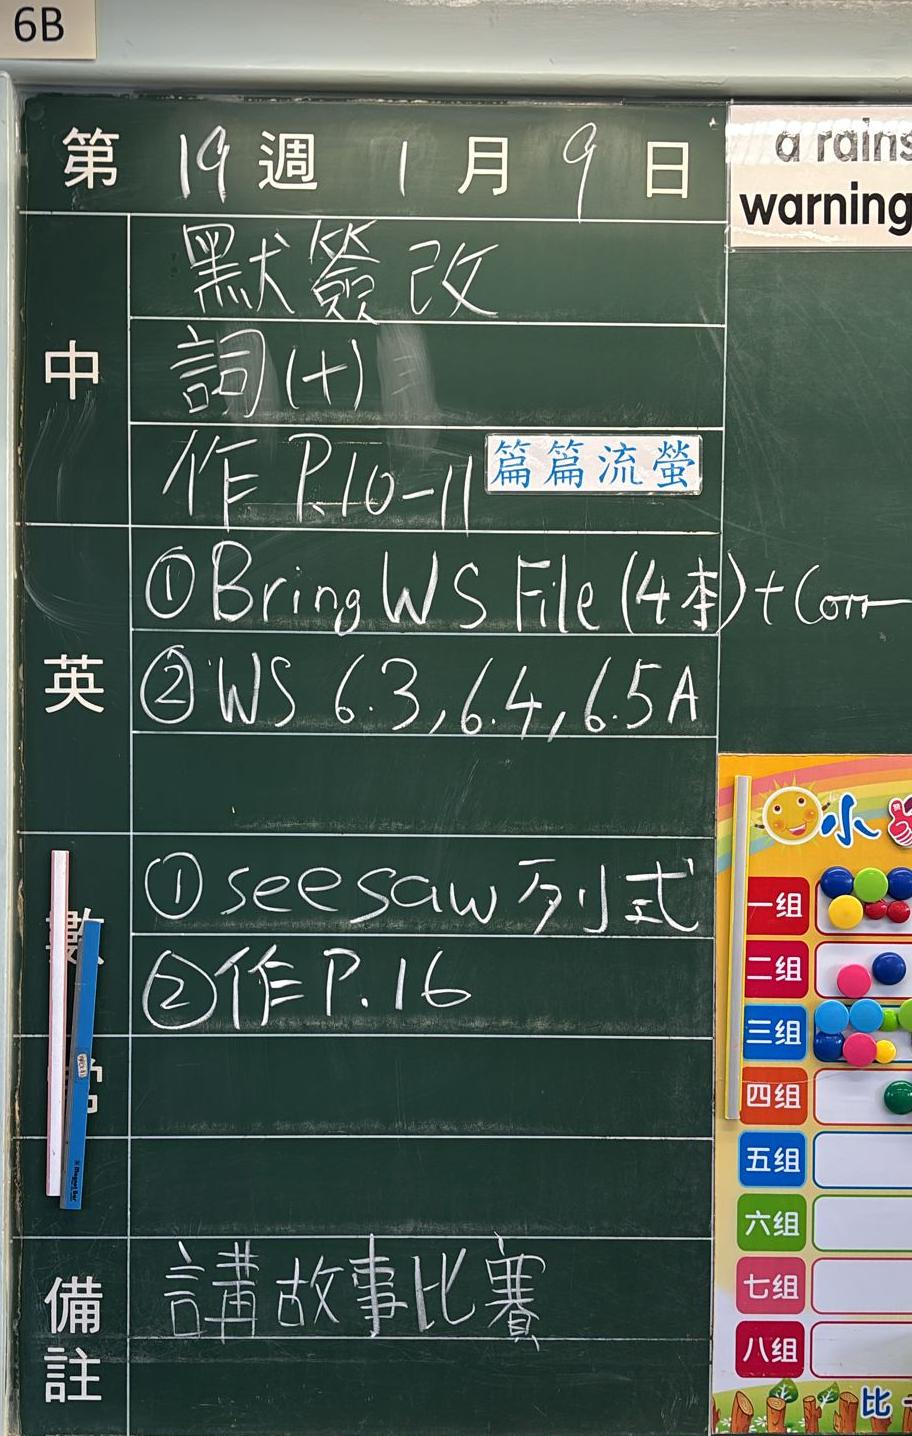 6B
第 19 週 1 月 9 日
a rains
warning
中
默簽改
詞(十)
作 P.10-11 篇篇流螢
英
①Bring WS File (4本)+Corr
②WS 6.3, 6.4, 6.5A
數學
①seesaw 列式
②作 P.16
備註
講故事比賽
小
一组
二组
三组
四组
五组
六组
七组
八组
比